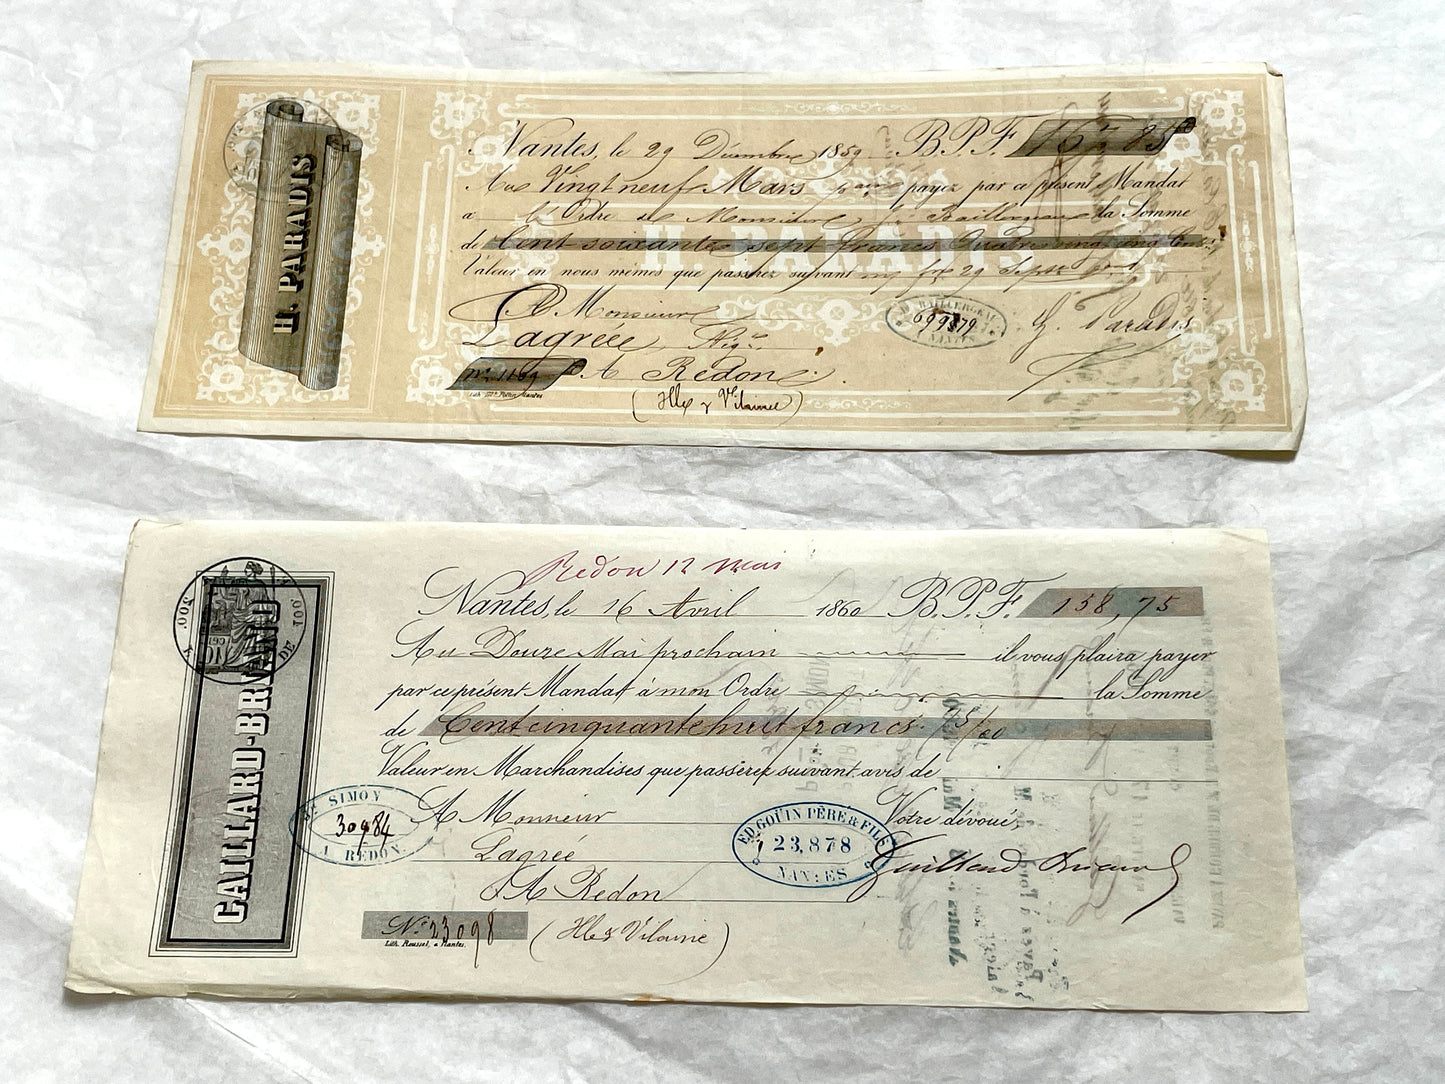 H. PARADIS
Nantes, le 29 Décembre 1859 B.P.F. 167 85
Au Vingt neuf Mars payez par ce présent Mandat
a l'Ordre de Monsieur Baillergeau la Somme
de Cent soixante sept francs Quatre vingt cinq Cent
H. PARADIS
Valeur en nous mêmes que passerez suivant
A Monsieur
Lagrée, Nég.t
BAILLERGEAU
699879
NANTES
H. Paradis
No. 1169 A Redon
(Ille & Vilaine)
Redon 12 mai
Nantes, le 16 Avril 1860 B.P.F. 158,75
Au Douze Mai prochain il vous plaira payer
par ce présent Mandat à mon Ordre la Somme
de Cent cinquante huit francs 75/00
Valeur en Marchandises que passerez suivant avis de
CAILLARD-BRIAND
SIMON
30984
A REDON
A Monsieur
Lagrée
A Redon
(Ille & Vilaine)
ED. GOÜIN PÈRE & FILS
23,878
NANTES
Votre dévoué
No. 23098
Lith. Roussel, a Nantes.